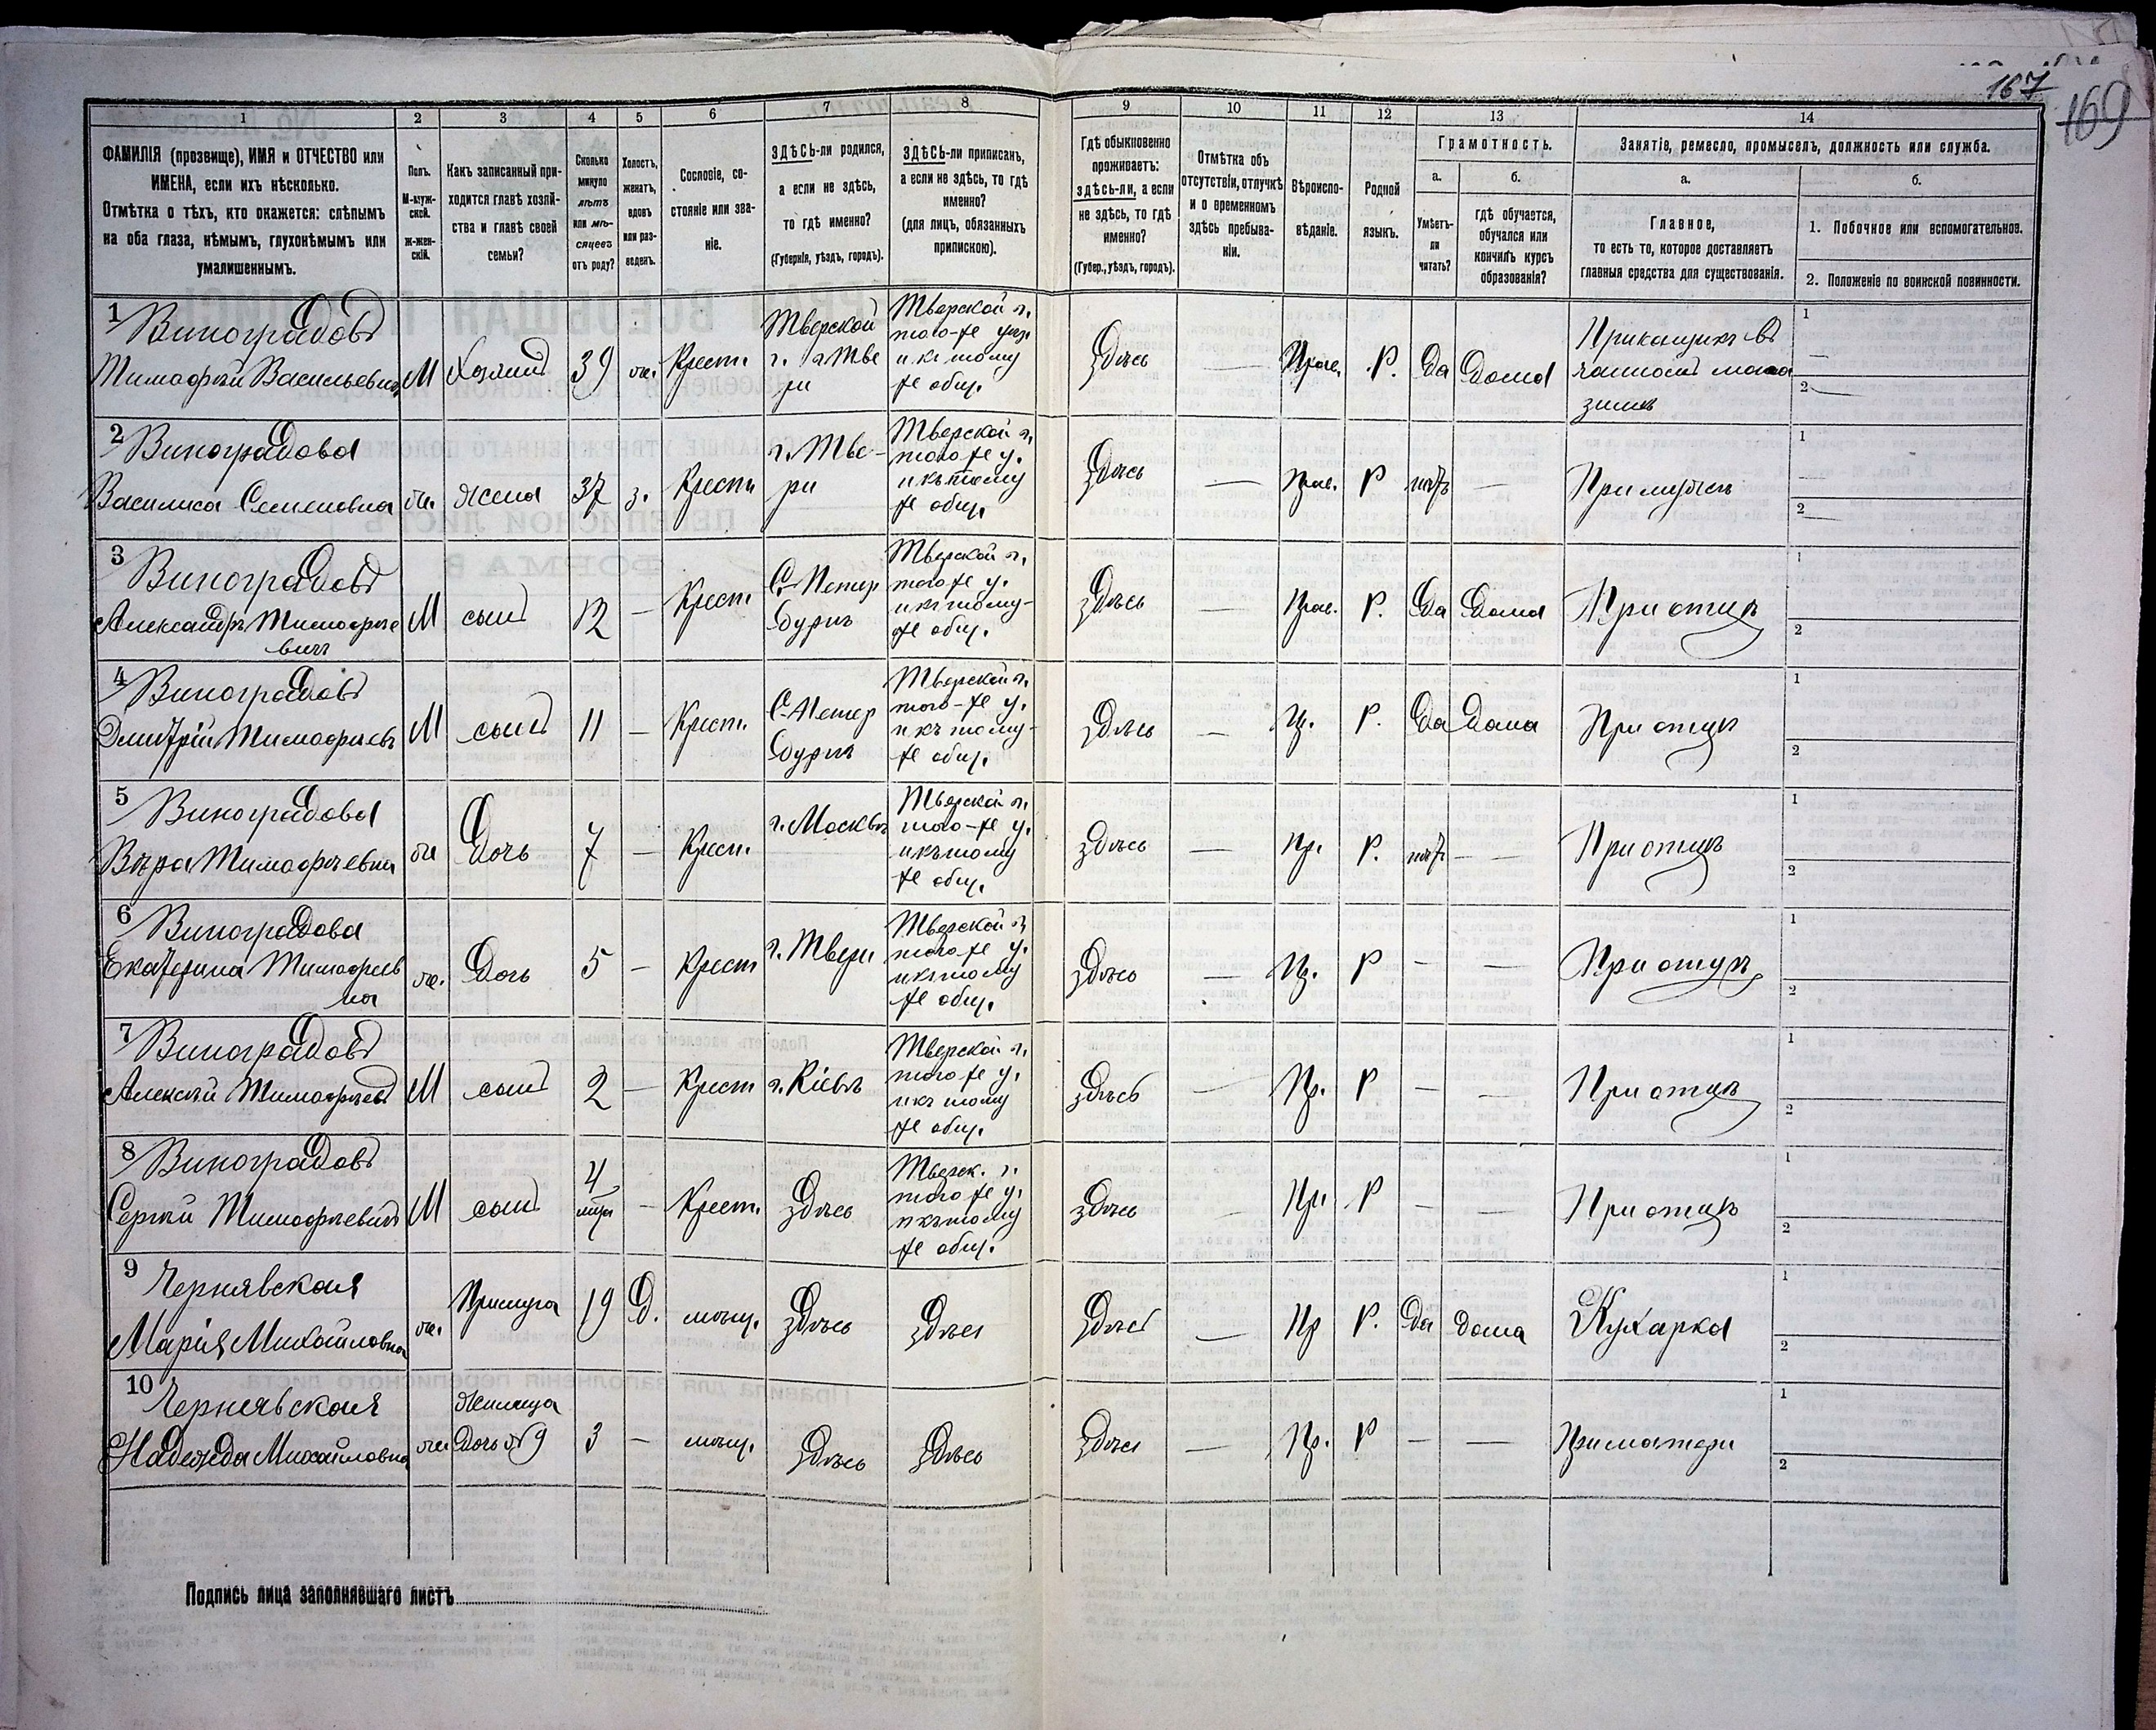 167
169
1 2 3 4 5 6 7 8 9 10 11 12 13 14
ФАМИЛІЯ (прозвище), ИМЯ и ОТЧЕСТВО или ИМЕНА, если ихъ нѣсколько.
Отмѣтка о тѣхъ, кто окажется: слѣпымъ на оба глаза, нѣмымъ, глухонѣмымъ или умалишеннымъ.
Полъ.
М-мужской.
Ж-женскій.
Какъ записанный приходится главѣ хозяйства и главѣ своей семьи?
Сколько минуло лѣтъ или мѣсяцевъ отъ роду?
Холостъ, женатъ, вдовъ или разведенъ.
Сословіе, состояніе или званіе.
ЗДѢСЬ-ли родился, а если не здѣсь, то гдѣ именно?
(Губернія, уѣздъ, городъ).
ЗДѢСЬ-ли приписанъ, а если не здѣсь, то гдѣ именно?
(для лицъ, обязанныхъ припискою).
Гдѣ обыкновенно проживаетъ: здѣсь-ли, а если не здѣсь, то гдѣ именно?
(Губер., уѣздъ, городъ).
Отмѣтка объ отсутствіи, отлучкѣ и о временномъ здѣсь пребываніи.
Вѣроисповѣданіе.
Родной языкъ.
Грамотность.
а.
Умѣетъ-ли читать?
б.
гдѣ обучается, обучался или кончилъ курсъ образованія?
Занятіе, ремесло, промыселъ, должность или служба.
а.
Главное,
то есть то, которое доставляетъ главныя средства для существованія.
б.
1. Побочное или вспомогательное.
2. Положеніе по воинской повинности.
1 Виноградовъ
Тимофѣй Васильевичъ М Хозяинъ 39 ж. Крест. Тверской г. г. Твери Тверской г. того-же уѣз. и къ тому же общ. Здѣсь — Прав. Р. Да Дома Прикащикъ въ чайномъ магазинѣ 1 — 2 —
2 Виноградова
Василиса Семеновна ж. жена 37 з. Крест г. Твери Тверской г. того же у. и къ тому же общ. Здѣсь — Прав. Р нѣтъ — При мужѣ 1 — 2 —
3 Виноградовъ
Александръ Тимофѣевичъ М сынъ 12 — Крест С-Петербургъ Тверской г. того же у. и къ тому-же общ. здѣсь — Прав. Р. Да Дома При отцѣ 1 2
4 Виноградовъ
Дмитрій Тимофѣевъ М сынъ 11 — Крест. С-Петербургъ Тверской г. того-же у. и къ тому-же общ. здѣсь — Пр. Р. Да Дома При отцѣ 1 2
5 Виноградова
Вѣра Тимофѣевна ж Дочь 7 — Крест. г. Москвѣ Тверской г. того-же у. и къ тому же общ. здѣсь — Пр. Р. нѣтъ — При отцѣ 1 2
6 Виноградова
Екатерина Тимофеевна ж. Дочь 5 — Крест г. Твери Тверской г. того же у. и къ тому же общ. здѣсь — Пр. Р — — При отцѣ 1 2
7 Виноградовъ
Алексѣй Тимофѣевъ М сынъ 2 — Крест г. Кіевѣ Тверской г. того же у. и къ тому же общ. здѣсь — Пр. Р — — При отцѣ 1 2
8 Виноградовъ
Сергѣй Тимофѣевичъ М сынъ 4 мѣц — Крест. здѣсь Тверск. г. того же у. и къ тому же общ. здѣсь — Пр. Р — — При отцѣ 1 2
9 Чернявская
Марія Михайловна ж. Прислуга 19 Д. мѣщ. здѣсь здѣсь здѣсь — Пр Р. Да дома Кухарка 1 2
10 Чернявская
Надежда Михайловна ж Жилица Дочь № 9 3 — мѣщ. здѣсь здѣсь здѣсь — Пр. Р — — При матери 1 2
Подпись лица заполнявшаго листъ